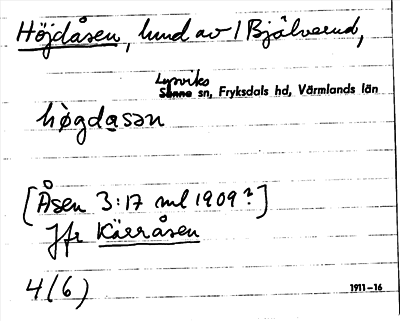 Höjdåsen, hmd av 1 Bjälverud,
Lysviks
Sunne sn, Fryksdals hd, Värmlands län
hø̀gdasən
[Åsen 3:17 ml 1909?]
Jfr Kärråsen
4(6)
1911-16